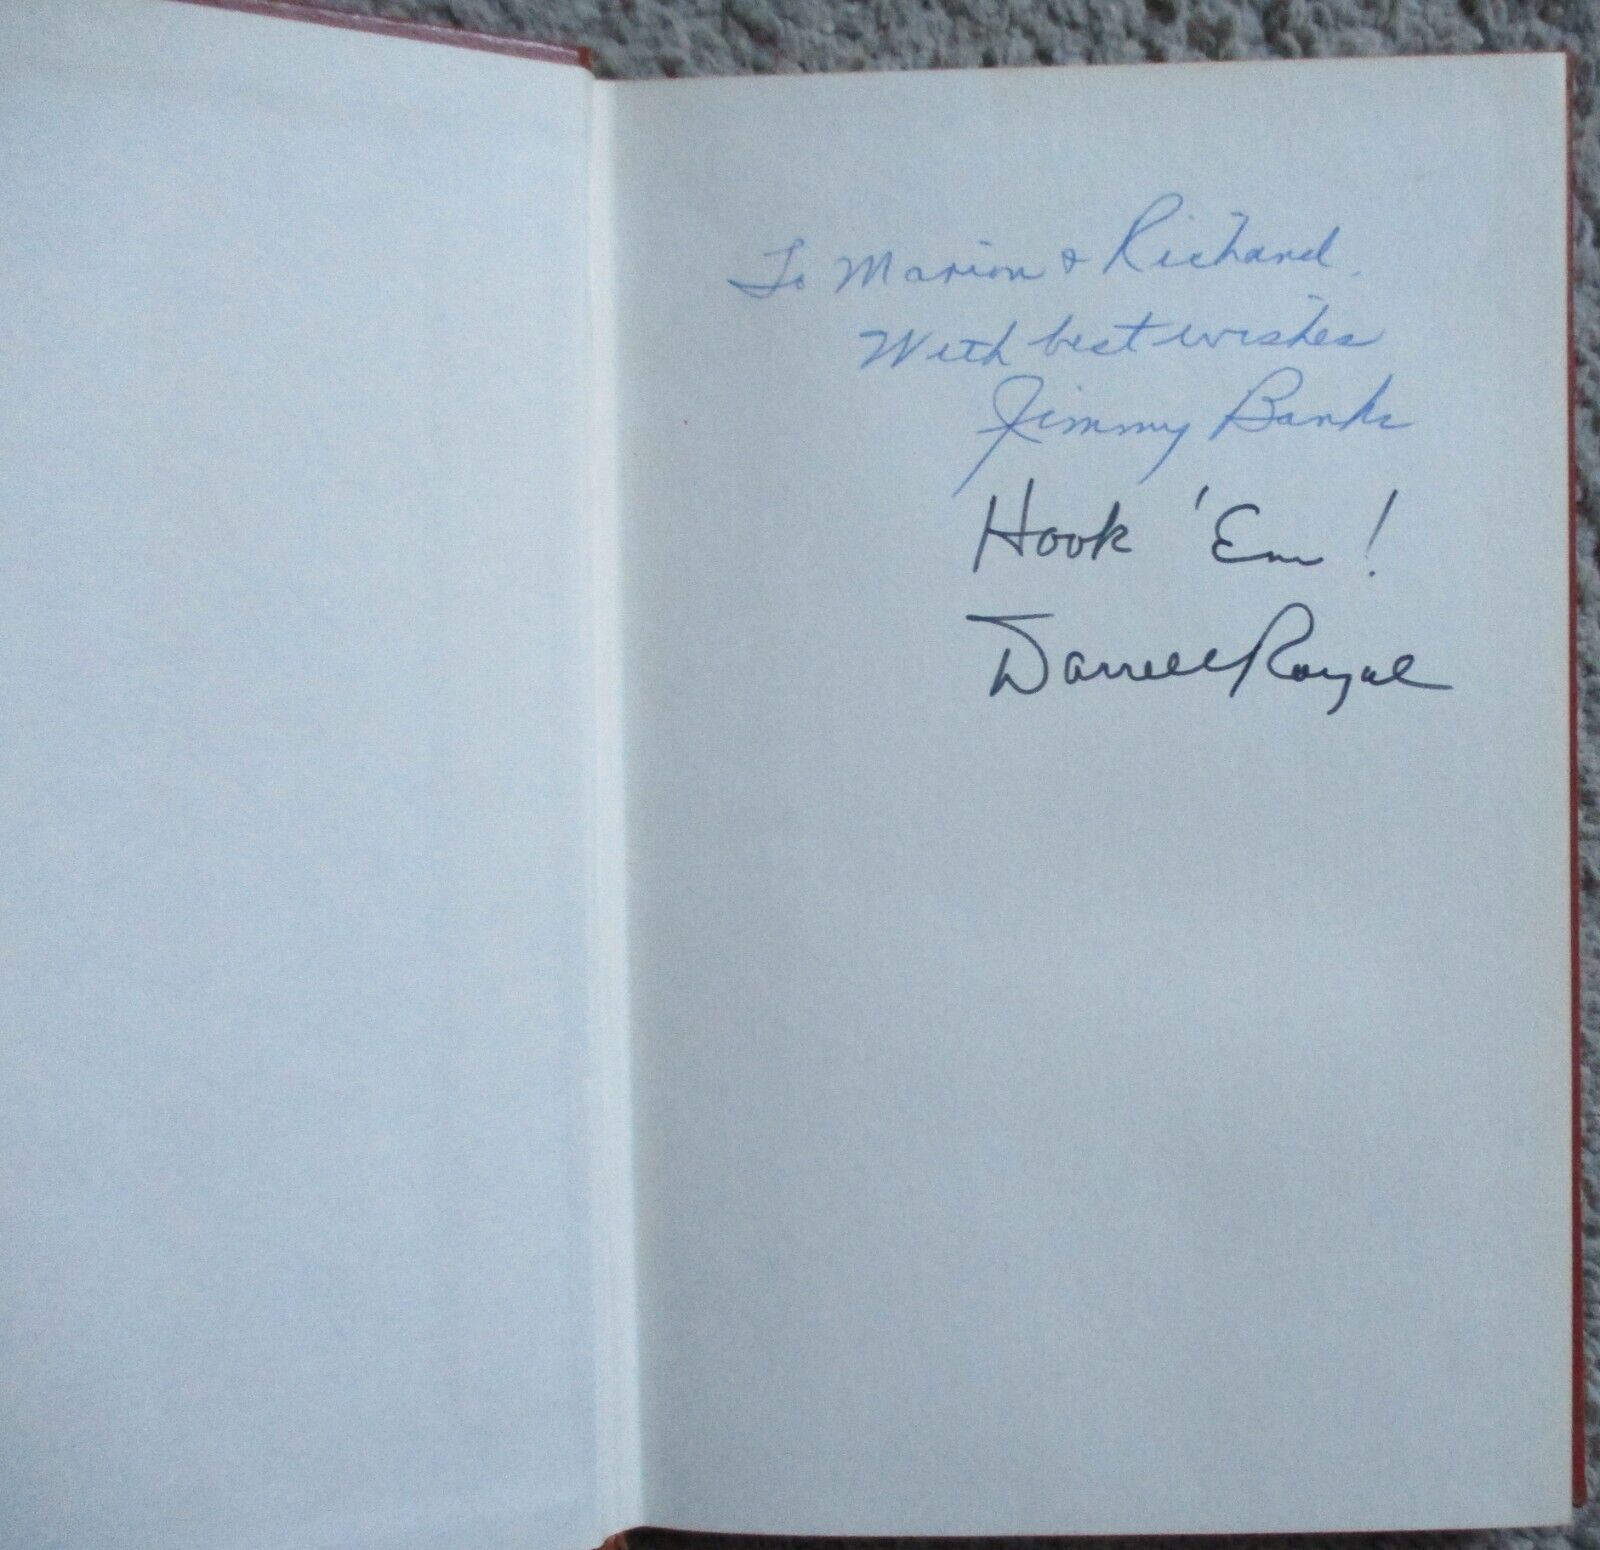 To Marion & Richard.
With best wishes
Jimmy Banks
Hook 'Em!
Darrell Royal